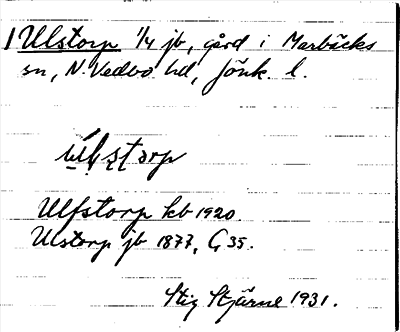 1 Ulstorp 1/4 jb, gård i Marbäcks
sn, N. Vedbo hd, Jönk. l.
Ulstorp
Ulfstorp kb 1920.
Ulstorp jb 1877, G 35.
Stig Stjärne 1931.